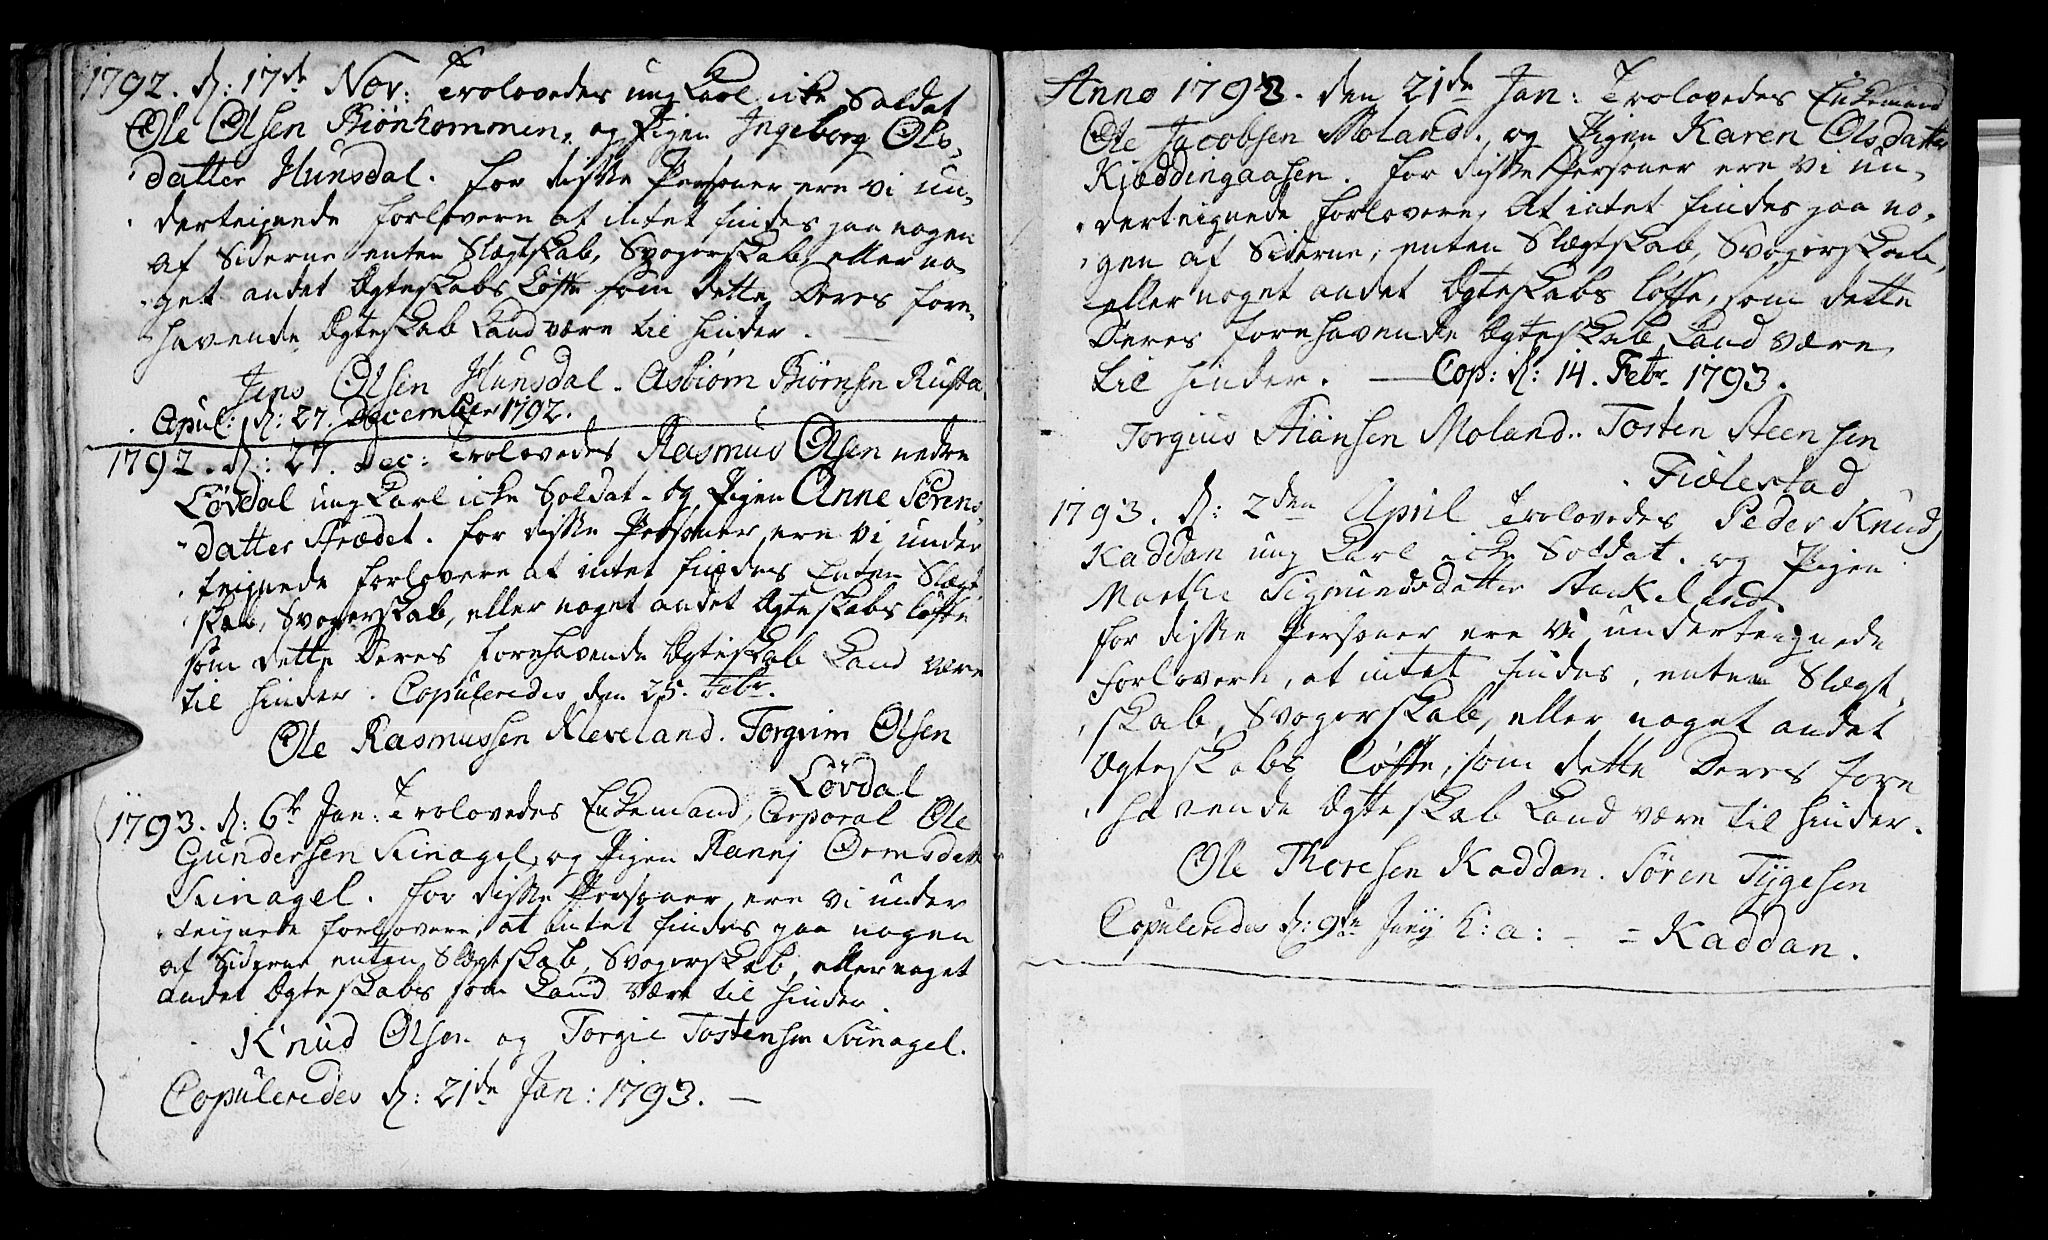 1792. d: 17de Nov: Trolovedes ung Karl icke Soldat
Ole Olsen Biönkommen, og Pigen Ingeborg Ols-
datter Hunsdal. For disse Personer ere vi un-
derteignede Forlovere at intet findes paa nogen
af Siderne enten Slægtskab, Svogerskab, eller no-
get andet Ægteskabs Løfte som dette Deres fore-
havende Ægteskab kand være til hinder.
Jens Olsen Hunsdal. Asbiörn Biörnsen Rusta.
Copul: d: 27. December 1792.
1792. d: 27. Dec: Trolovedes Rasmus Olsen nedre
Lövdal ung Karl icke Soldat. og Pigen Anne Sörens-
datter Trædet. For disse Personer ere vi under
teignede Forlovere at intet findes Enten Slægt
skab, Svogerskab, eller noget andet Ægteskabs løfte
som dette Deres forehavende Ægteskab kand være
til hinder. Copuleredes den 25. Febr.
Ole Rasmussen Kleveland. Torgrim Olsen
Lövdal
1793. d: 6te Jan: Trolovedes Enkemand, Corporal Ole
Gundersen Svinagel, og Pigen Rannj Ormsdatt
Svinagel. For disse Personer ere vi under
teignede forlovere, at intet findes paa nogen
af Siderne enten Slægtskab, Svogerskab, eller noget
andet Ægteskabs som kand være til hinder.
Knud Olsen og Torgie Tostensen Svinagel.
Copuleredes d: 21de Jan: 1793. —
Anno 1793. den 21de Jan: Trolovedes Enkemand
Ole Jacobsen Moland. og Pigen Karen Olsdatter
Kiøddingaasen. For disse Personer ere vi un-
derteignede Forlovere, At intet findes paa no-
gen af Siderne, enten Slægtskab, Svogerskab,
eller noget andet Ægteskabs løfte, som dette
Deres forehavende Ægteskab kand være
til hinder. — Cop: d: 14. Febr. 1793.
Torgius Stiansen Moland. Tosten Steensen
Fiælestad
1793. d: 2den April Trolovedes Peder Knuds
Kaddan ung Karl icke Soldat. og Pigen
Marthe Sigmundsdatter Stakeland.
For disse Personer ere Vi underteignede
Forlovere, at intet findes, enten Slægt-
skab, Svogerskab, eller noget andet
Ægteskabs Løfte, som dette Deres fore
havende Ægteskab kand være til hinder.
Ole Thoresen Kaddan. Sören Tygesen
Copuleredes d: 9de Junj h: a: - = Kaddan.